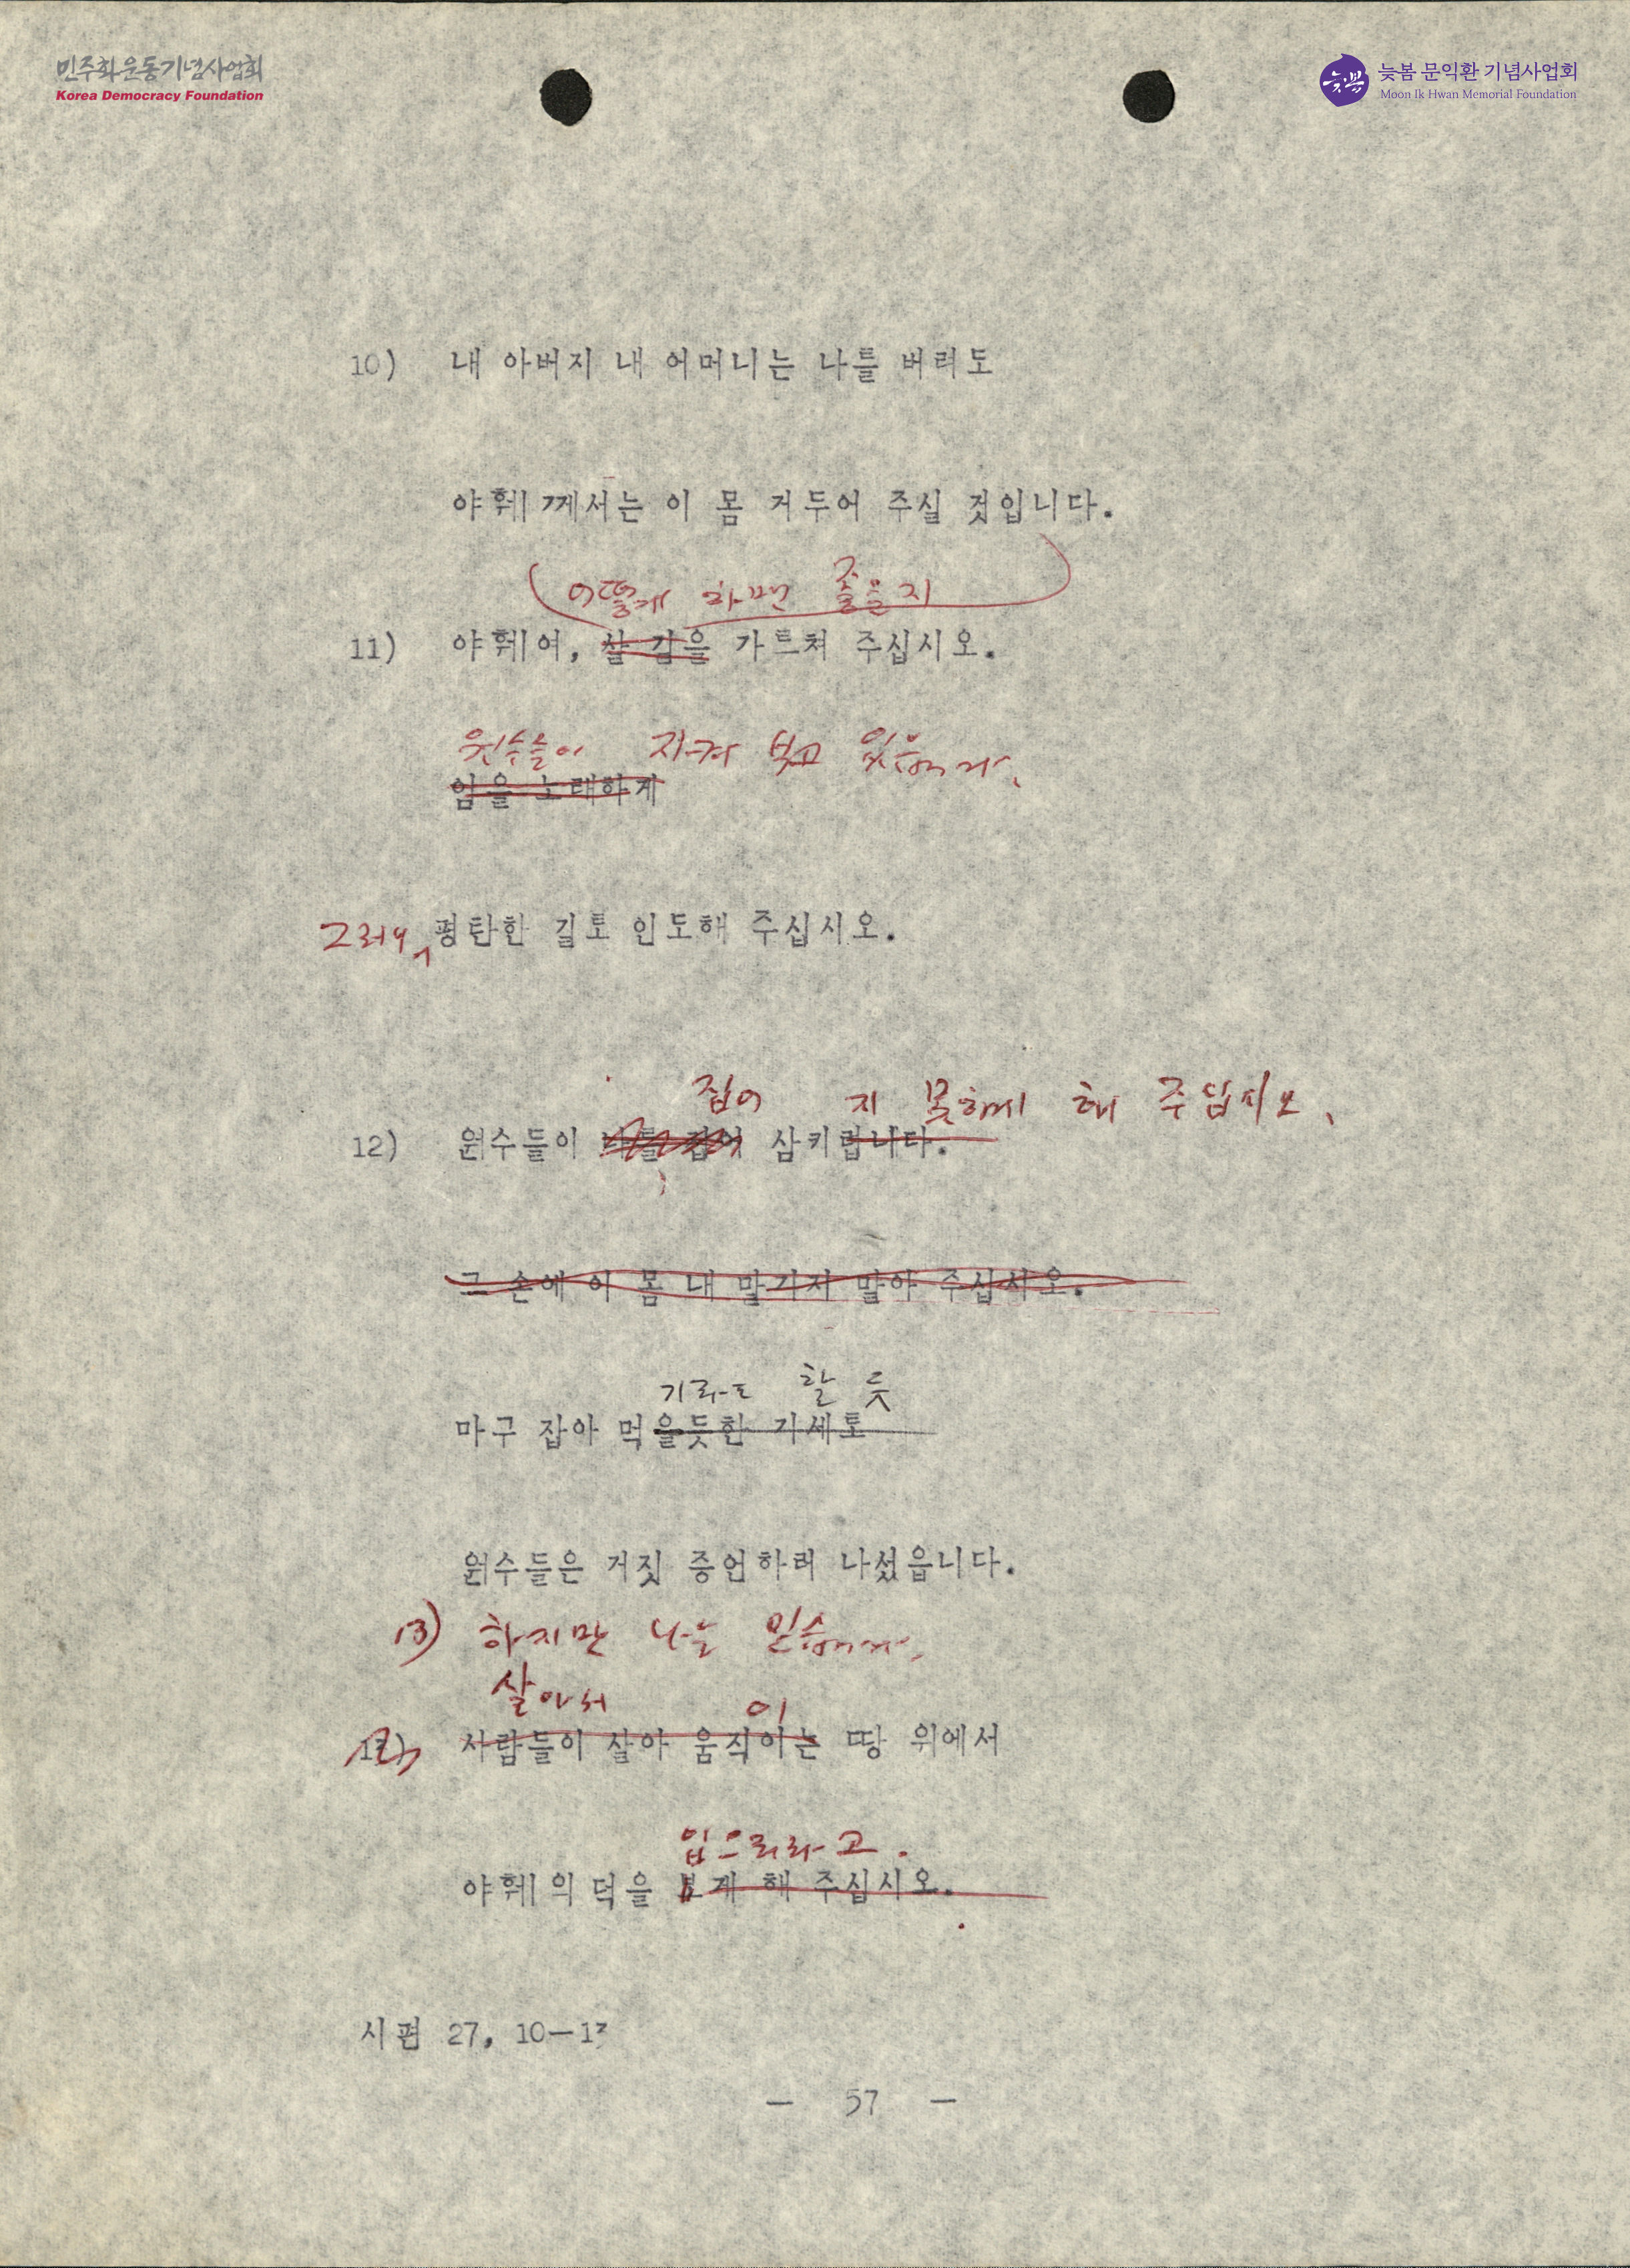 민주화운동기념사업회
Korea Democracy Foundation
늦봄
늦봄 문익환 기념사업회
Moon Ik Hwan Memorial Foundation
10) 내 아버지 내 어머니는 나를 버려도
야훼께서는 이 몸 거두어 주실 것입니다.
어떻게 하면 좋을지
11) 야훼여, 살 길을 가르쳐 주십시오.
원수들이 지켜 보고 있습니다.
맘을 노래하게
그러니 평탄한 길로 인도해 주십시오.
집어 지 못하게 해 주십시오.
12) 원수들이 나를 집어 삼키렵니다.
그 손에 이 몸 내 맡기지 말아 주십시오.
기라도 할 듯
마구 잡아 먹을듯한 기세로
원수들은 거짓 증언하러 나섰읍니다.
13) 하지만 나는 믿습니다.
살아서 이
13) 사람들이 살아 움직이는 땅 위에서
입으리라고.
야훼의 덕을 보게 해 주십시오.
시편 27, 10-13
- 57 -